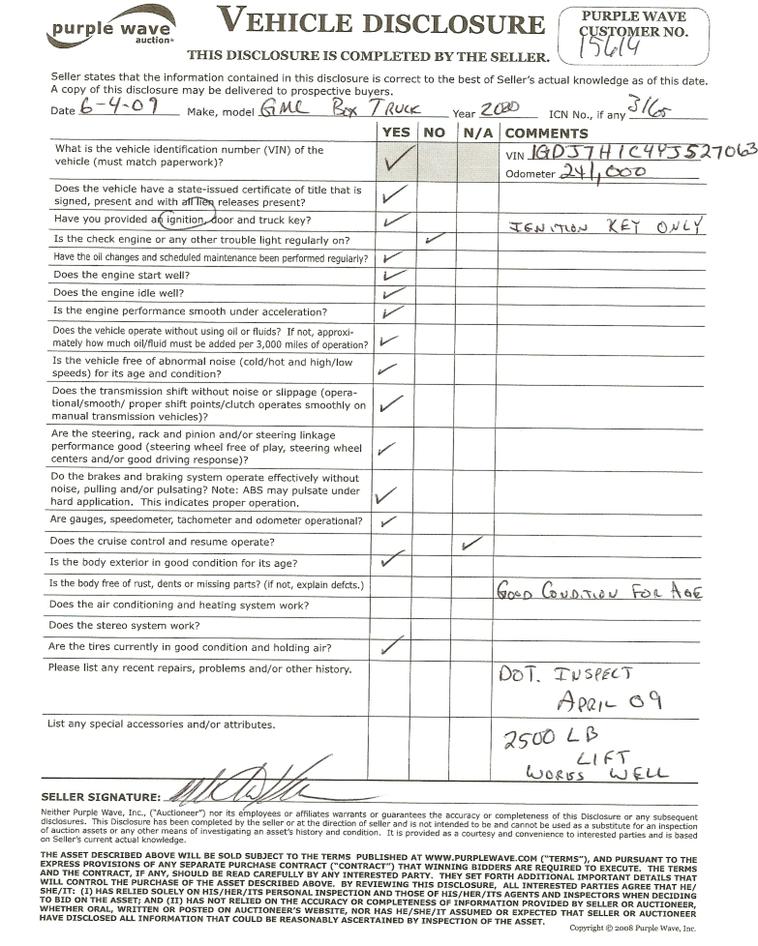 purple wave
auction
VEHICLE DISCLOSURE
THIS DISCLOSURE IS COMPLETED BY THE SELLER.
PURPLE WAVE
CUSTOMER NO.
15614
Seller states that the information contained in this disclosure is correct to the best of Seller's actual knowledge as of this date.
A copy of this disclosure may be delivered to prospective buyers.
Date 6-4-09 Make, model GMC Box TRUCK Year 2000 ICN No., if any 3165
YES NO N/A COMMENTS
What is the vehicle identification number (VIN) of the
vehicle (must match paperwork)?
VIN 1GDJ7H1C4YJ527063
Odometer 241,000
Does the vehicle have a state-issued certificate of title that is
signed, present and with all lien releases present?
Have you provided an ignition, door and truck key?
IGNITION KEY ONLY
Is the check engine or any other trouble light regularly on?
Have the oil changes and scheduled maintenance been performed regularly?
Does the engine start well?
Does the engine idle well?
Is the engine performance smooth under acceleration?
Does the vehicle operate without using oil or fluids? If not, approxi-
mately how much oil/fluid must be added per 3,000 miles of operation?
Is the vehicle free of abnormal noise (cold/hot and high/low
speeds) for its age and condition?
Does the transmission shift without noise or slippage (opera-
tional/smooth/ proper shift points/clutch operates smoothly on
manual transmission vehicles)?
Are the steering, rack and pinion and/or steering linkage
performance good (steering wheel free of play, steering wheel
centers and/or good driving response)?
Do the brakes and braking system operate effectively without
noise, pulling and/or pulsating? Note: ABS may pulsate under
hard application. This indicates proper operation.
Are gauges, speedometer, tachometer and odometer operational?
Does the cruise control and resume operate?
Is the body exterior in good condition for its age?
Is the body free of rust, dents or missing parts? (if not, explain defcts.)
GOOD CONDITION FOR AGE
Does the air conditioning and heating system work?
Does the stereo system work?
Are the tires currently in good condition and holding air?
Please list any recent repairs, problems and/or other history.
DOT. INSPECT
APRIL 09
List any special accessories and/or attributes.
2500 LB
LIFT
WORKS WELL
SELLER SIGNATURE:
Neither Purple Wave, Inc., ("Auctioneer") nor its employees or affiliates warrants or guarantees the accuracy or completeness of this Disclosure or any subsequent
disclosures. This Disclosure has been completed by the seller or at the direction of seller and is not intended to and cannot be used as a substitute for an inspection
of auction assets or any other means of investigating an asset's history and condition. It is provided as a courtesy and convenience to interested parties and is based
on Seller's current actual knowledge.
THE ASSET DESCRIBED ABOVE WILL BE SOLD SUBJECT TO THE TERMS PUBLISHED AT WWW.PURPLEWAVE.COM ("TERMS"), AND PURSUANT TO THE
EXPRESS PROVISIONS OF ANY SEPARATE PURCHASE CONTRACT ("CONTRACT") THAT WINNING BIDDERS ARE REQUIRED TO EXECUTE. THE TERMS
AND THE CONTRACT, IF ANY, SHOULD BE READ CAREFULLY BY ANY INTERESTED PARTY. THEY SET FORTH ADDITIONAL IMPORTANT DETAILS THAT
WILL CONTROL THE PURCHASE OF THE ASSET DESCRIBED ABOVE. BY REVIEWING THIS DISCLOSURE, ALL INTERESTED PARTIES AGREE THAT HE/
SHE/IT: (I) HAS RELIED SOLELY ON HIS/HER/ITS PERSONAL INSPECTION AND THOSE OF HIS/HER/ITS AGENTS AND INSPECTORS WHEN DECIDING
TO BID ON THE ASSET; AND (II) HAS NOT RELIED ON THE ACCURACY OR COMPLETENESS OF INFORMATION PROVIDED BY SELLER OR AUCTIONEER,
WHETHER ORAL, WRITTEN OR POSTED ON AUCTIONEER'S WEBSITE, NOR HAS HE/SHE/IT ASSUMED OR EXPECTED THAT SELLER OR AUCTIONEER
HAVE DISCLOSED ALL INFORMATION THAT COULD BE REASONABLY ASCERTAINED BY INSPECTION OF THE ASSET.
Copyright © 2008 Purple Wave, Inc.